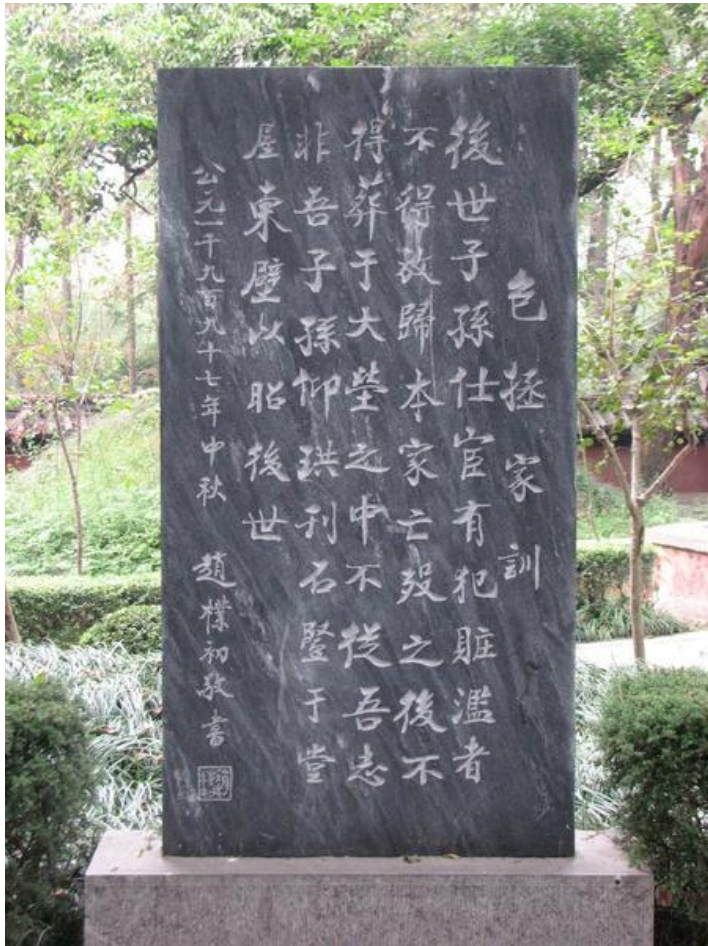 包拯家訓
後世子孫仕宦有犯賍濫者
不得放歸本家亡殁之後不
得葬于大塋之中不從吾志
非吾子孫仰珙刊石竪于堂
屋東壁以昭後世
公元一千九百九十七年中秋 趙樸初敬書